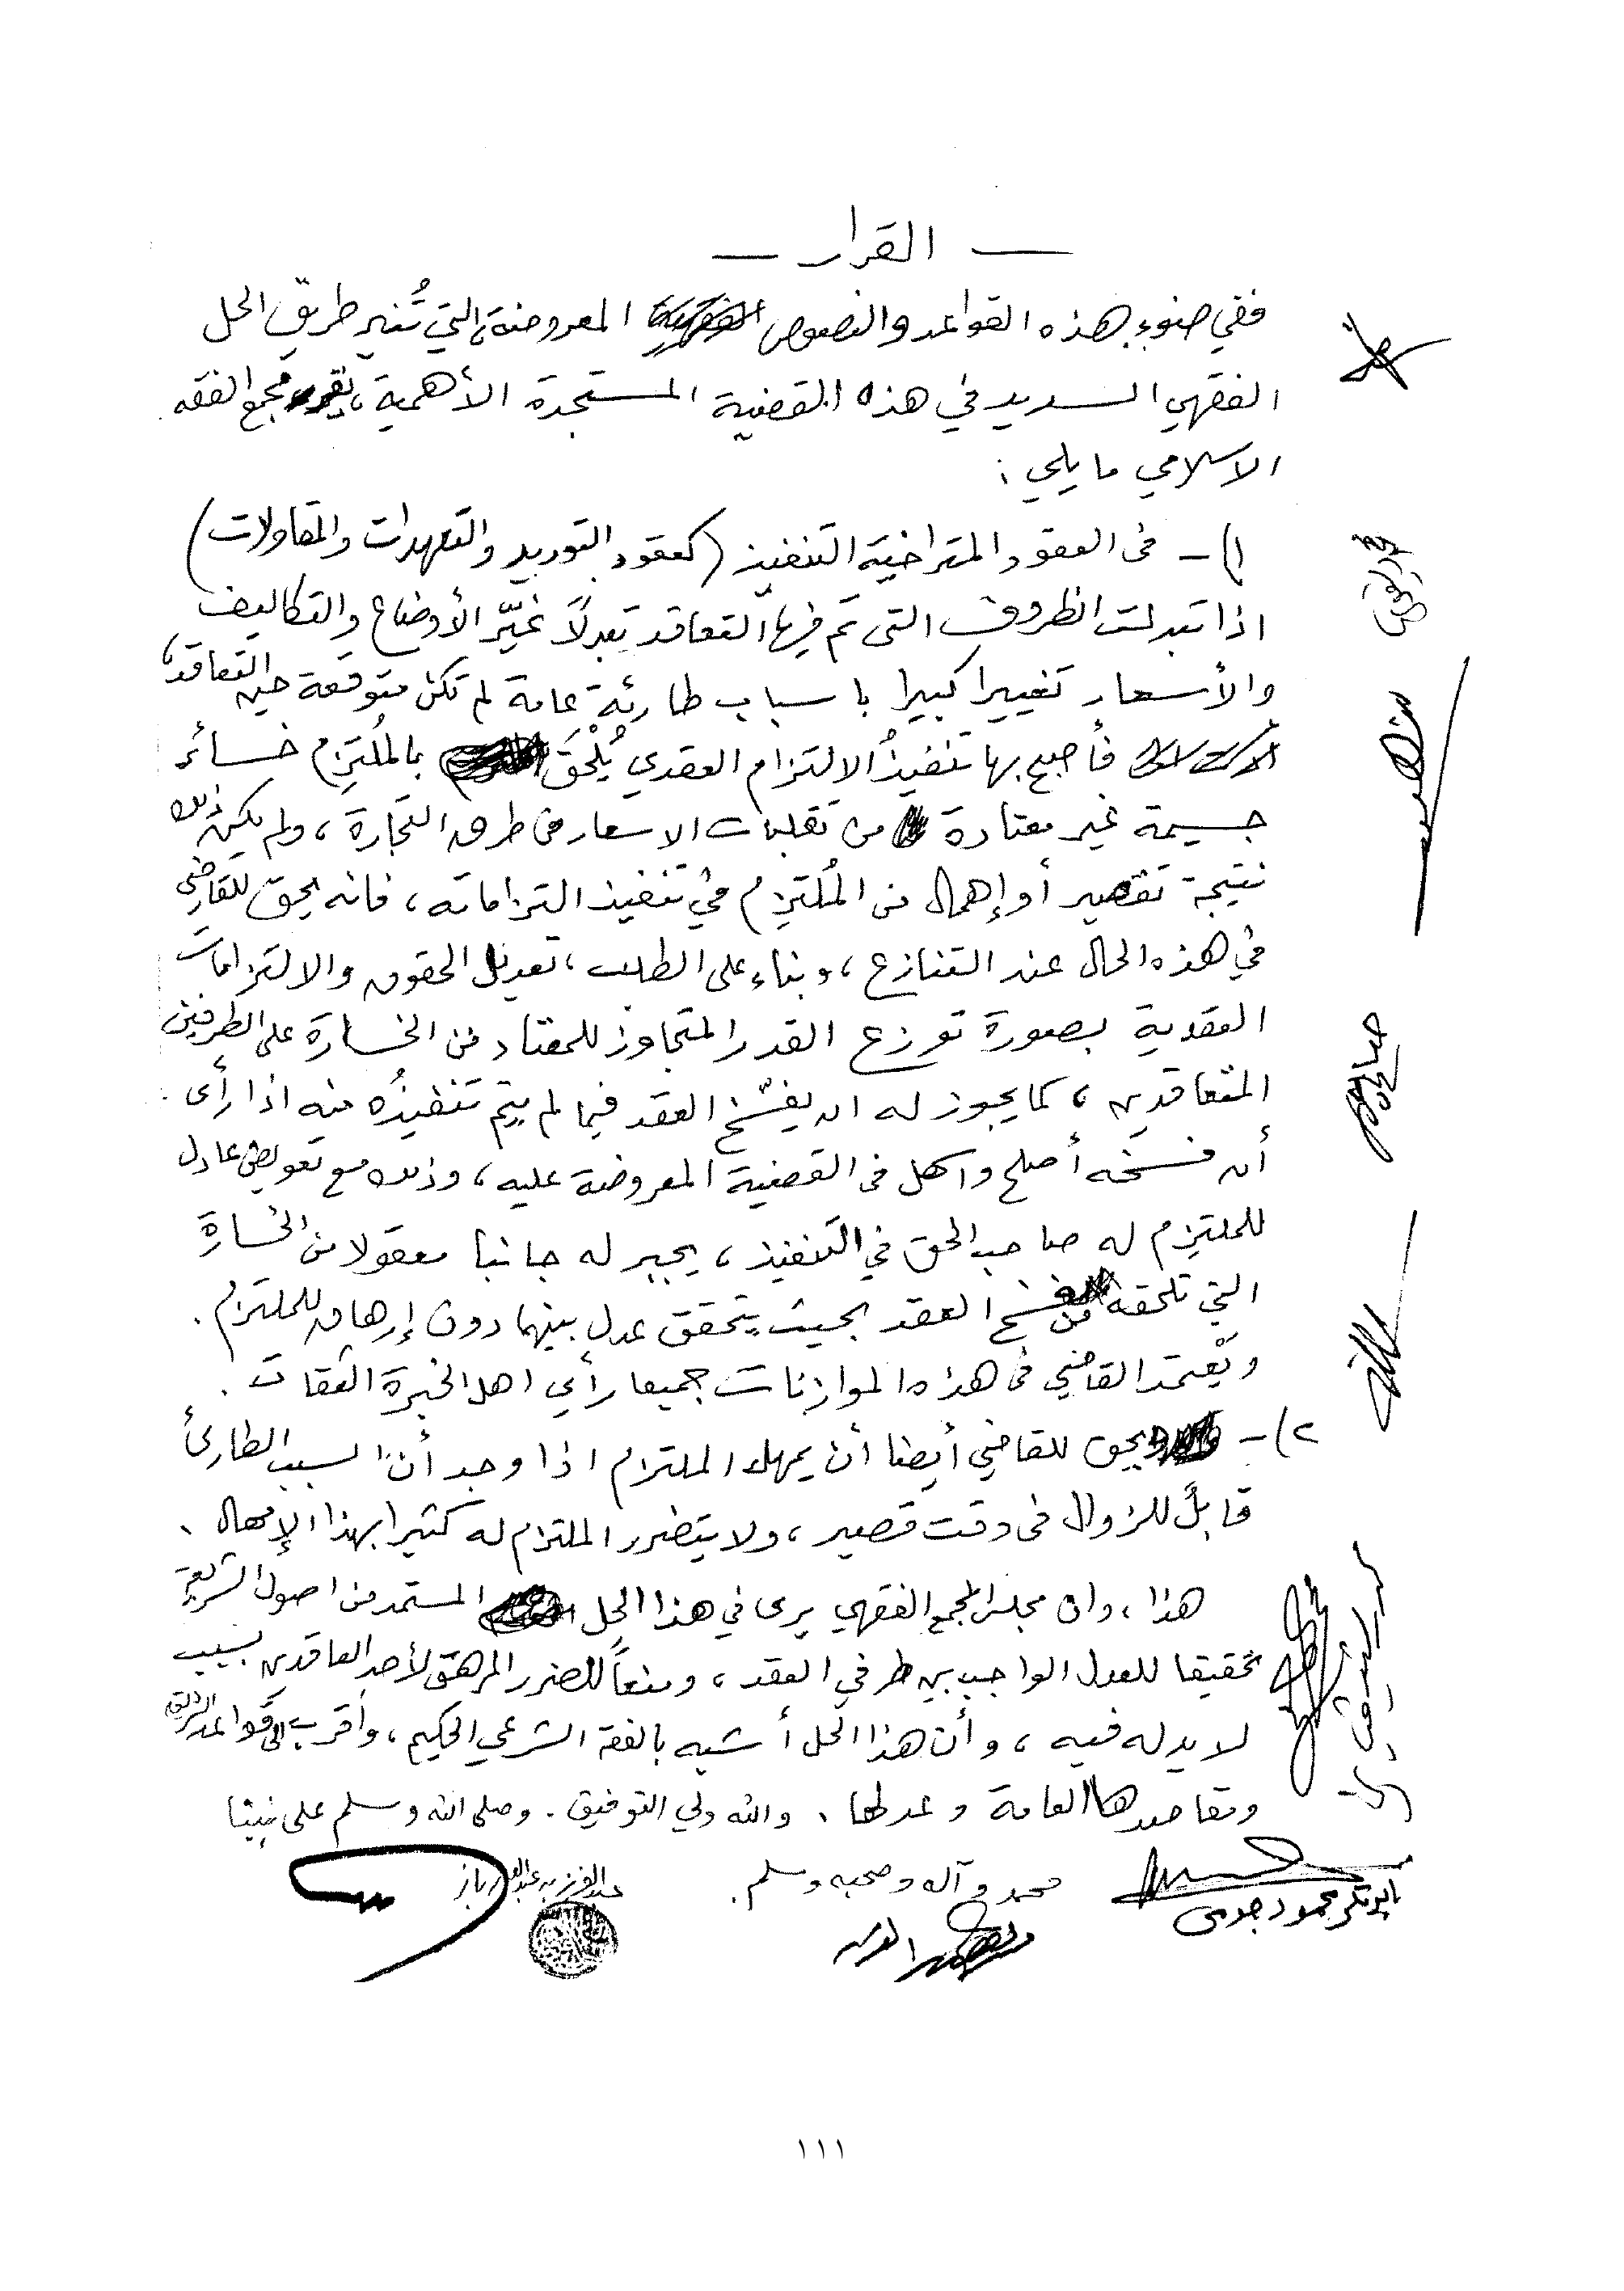 — القرار —
ففي ضوء هذه القواعد والنصوص المعروضة، التي تُنير طريق الحل
الفقهي السديد في هذه القضية المستجدة الأهمية، يقرر مجمع الفقه
الاسلامي ما يلي :
١) – في العقود المتراخية التنفيذ (كعقود التوريد والتعهدات والمقاولات)
اذا تبدلت الظروف التي تم فيها التعاقد تبدلاً غيّر الأوضاع والتكاليف
والأسعار تغييرا كبيرا باسباب طارئة عامة لم تكن متوقعة حين التعاقد،
فأصبح بها تنفيذُ الالتزام العقدي يُلْحق بالمُلتزِم خسائر
جسيمة غير معتادة من تقلبات الاسعار في طرق التجارة، ولم يكن ذلك
نتيجة تقصير أو إهمال من المُلتزِم في تنفيذ التزاماته، فانه يحق للقاضي
في هذه الحال عند التنازع، وبناء على الطلب، تعديل الحقوق والالتزامات
العقدية بصورة توزع القدر المتجاوز للمعتاد من الخسارة على الطرفين
المتعاقدين، كما يجوز له ان يفسَخ العقد فيما لم يتم تنفيذُه منه اذا رأى
أن فسخه أصلح واسهل في القضية المعروضة عليه، وذلك مع تعويض عادل
للملتزِم له صاحب الحق في التنفيذ، يجبر له جانبا معقولا من الخسارة
التي تلحقه من فسخ العقد بحيث يتحقق عدل بينهما دون إرهاق للملتزم.
ويَعتمد القاضي في هذه الموازنات جميعا رأي اهل الخبرة الثقات.
٢) – ويحق للقاضي أيضا أن يمهل الملتزم اذا وجد أن السبب الطارئ
قابلٌ للزوال في وقت قصير، ولا يتضرر الملتزم له كثيرا بهذا الإمهال.
هذا، وان مجلس المجمع الفقهي يرى في هذا الحل المستمد من اصول الشريعة
تحقيقا للعدل الواجب بين طرفي العقد، ومنعاً للضرر المرهق لأحد العاقدين بسبب
لا يد له فيه، وأن هذا الحل أشبه بالفقه الشرعي الحكيم، وأقرب الى قواعد الشريعة
ومقاصدها العامة وعدلها. والله ولي التوفيق. وصلى الله وسلم على نبينا
محمد وآله وصحبه وسلم.
عبد العزيز بن عبد الله بن باز
ابوبكر محمود جومي
١١١